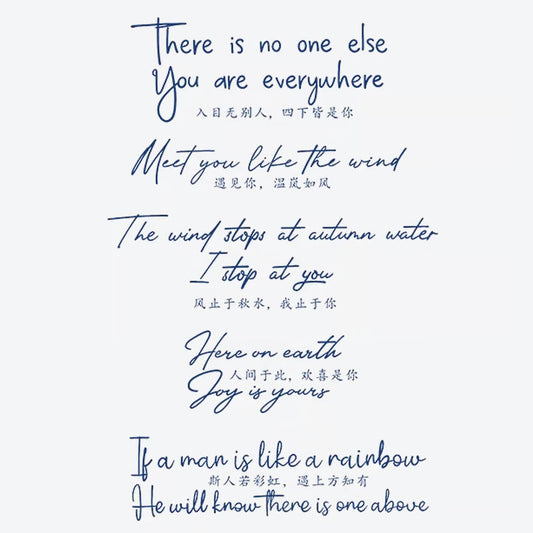 There is no one else
You are everywhere
入目无别人，四下皆是你
Meet you like the wind
遇见你，温岚如风
The wind stops at autumn water
I stop at you
风止于秋水，我止于你
Here on earth
人间于此，欢喜是你
Joy is yours
If a man is like a rainbow
斯人若彩虹，遇上方知有
He will know there is one above